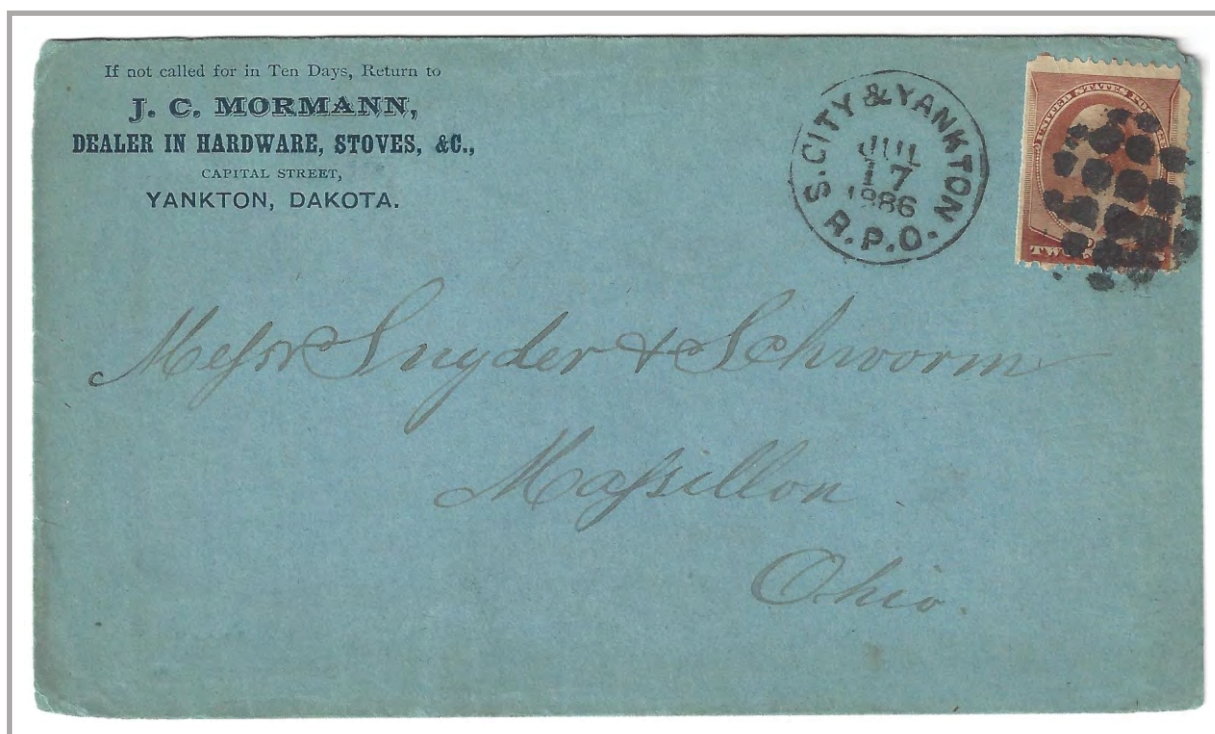 If not called for in Ten Days, Return to
J. C. MORMANN,
DEALER IN HARDWARE, STOVES, &C.,
CAPITAL STREET,
YANKTON, DAKOTA.
S. CITY & YANKTON
JUL
17
1886
R.P.O.
UNITED STATES PO
TWO
Messrs Snyder & Schworm
Massillon
Ohio.